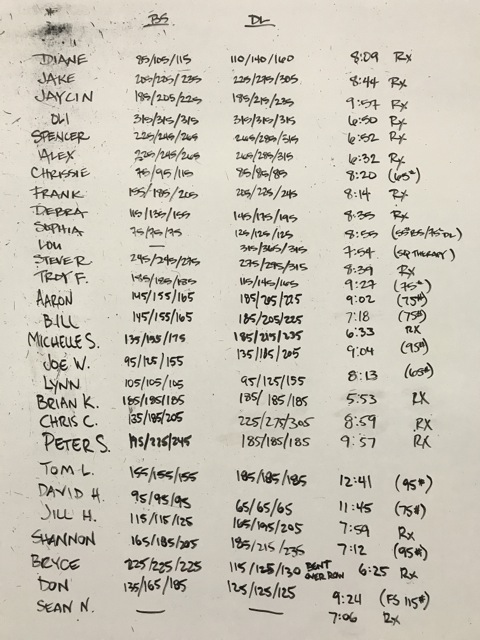 BS DL
DIANE 85/105/115 110/140/160 8:09 Rx
JAKE 205/205/235 225/275/305 8:44 Rx
JAYLIN 185/205/225 185/215/235 9:57 Rx
OLI 315/315/315 315/315/315 6:50 Rx
SPENCER 225/245/265 265/285/315 6:52 Rx
ALEX 225/245/265 265/285/315 6:32 Rx
CHRSSIE 75/95/115 85/85/85 8:20 (65#)
FRANK 155/185/205 205/225/245 8:14 Rx
DEBRA 115/135/155 145/175/195 8:35 Rx
SOPHIA 75/75/75 125/125/125 8:55
LOU — 315/365/315 7:54 (SQ THERAPY)
STEVER 245/245/275 275/295/315 8:39 Rx
TROY F. 185/185/185 115/145/165 9:27 (75#)
AARON 145/155/165 185/205/225 9:02 (75#)
BILL 145/155/165 185/205/225 7:18 (75#)
MICHELLE S. 135/155/175 185/215/235 6:33 Rx
JOE W. 95/125/155 135/185/205 9:04 (95#)
LYNN 105/105/105 95/125/155 8:13 (65#)
BRIAN K. 185/185/185 185/185/185 5:53 RX
CHRIS C. 135/185/205 225/275/305 8:59 RX
PETER S. 195/225/245 185/185/185 9:57 RX
TOM L. 155/155/155 185/185/185 12:41 (95#)
DAVID H. 95/95/95 65/65/65 11:45 (75#)
JILL H. 115/115/125 165/195/205 7:59 Rx
SHANNON 165/185/205 185/215/235 7:12 (95#)
BRYCE 225/225/225 115/125/130 BENT OVER ROW 6:25 Rx
DON 135/165/185 125/125/125 9:24 (FS 115#)
SEAN N. — — 7:06 Rx